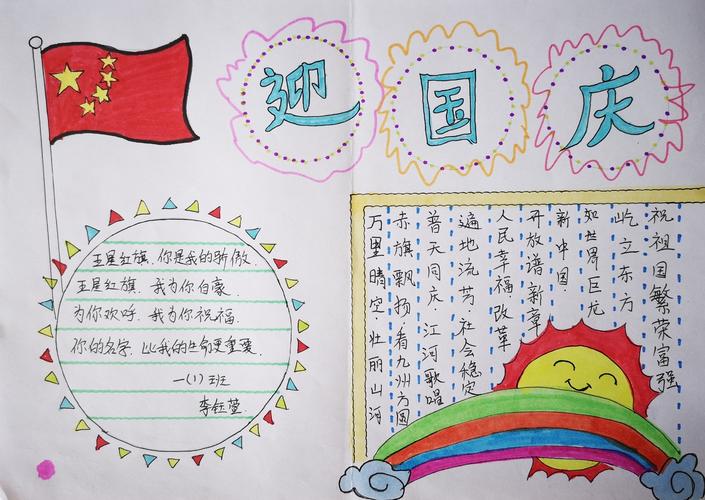 迎国庆
五星红旗,你是我的骄傲.
五星红旗,我为你自豪.
为你欢呼,我为你祝福.
你的名字,比我的生命更重要.
一(1)班
李钰
万里晴空.壮丽山河
赤旗飘扬看九州方圆
普天同庆.江河歌唱
遍地流芳.社会稳定
人民幸福.改革
开放谱新章
新中国.
如世界巨龙
屹立东方
祝祖国繁荣富强